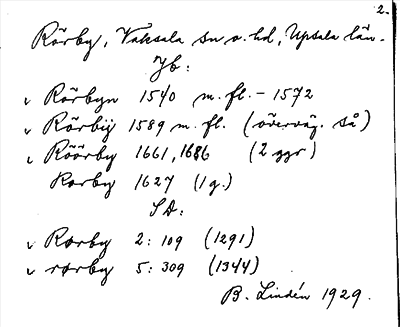 2.
Rörby, Vaksala sn o. hd, Upsala län.
Jb:
v Rörbyn 1540 m. fl. - 1572
v Rörbÿ 1589 m. fl. (överväg. så)
v Röörby 1661, 1686 (2 ggr)
Rorby 1627 (1 g.)
SD:
v Rorby 2: 109 (1291)
v rorby 5: 309 (1344)
B. Lindén 1929.